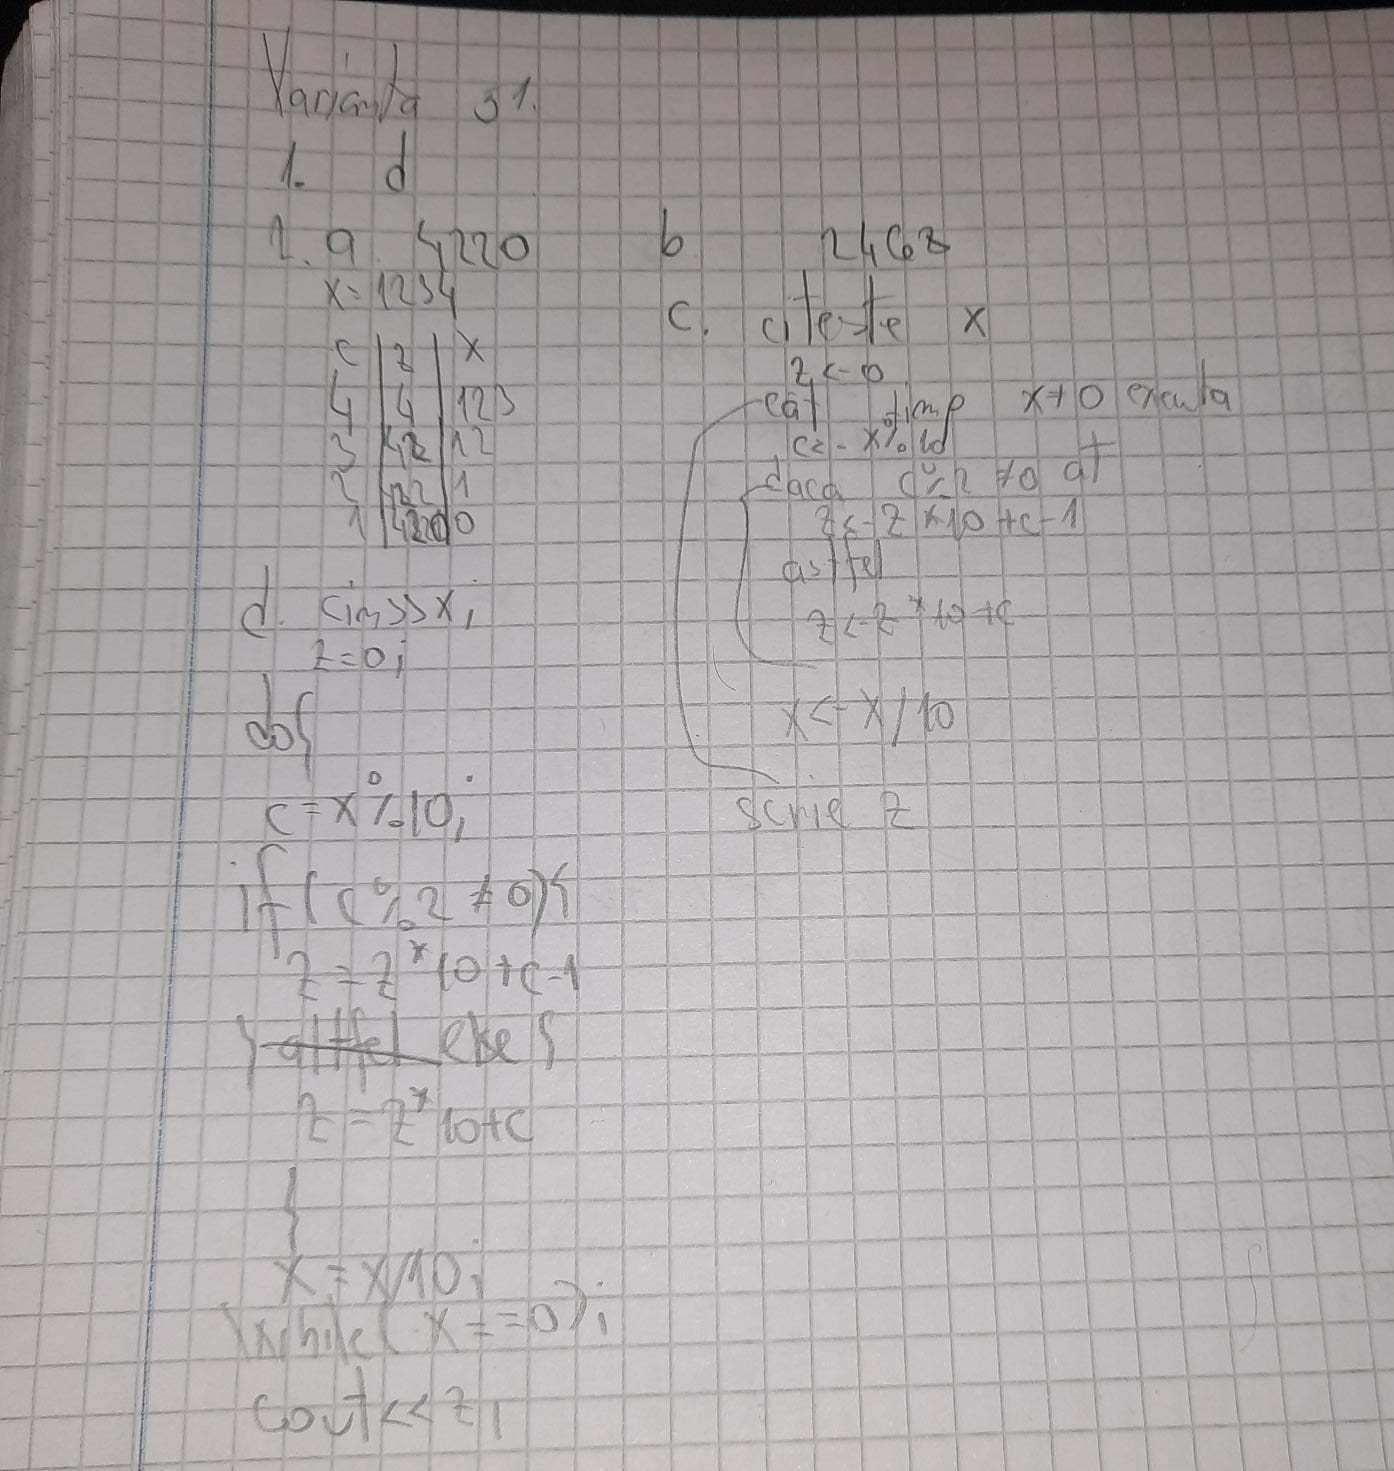 Varianta 31.
1. d
2. a. 4220
x=1234
c | z | x
4 | 4 | 123
3 | 42 | 12
2 | 422 | 1
1 | 4220 | 0
b 2468
c. citeste x
z <- 0
cat timp x≠0 executa
c<- x%10
daca c%2 ≠0 at
z<-z*10+c-1
astfel
z<-z*10+c
x<-x/10
scrie z
d. cin>>x;
z=0;
do{
c=x%10;
if(c%2≠0){
z=z*10+c-1
} else{
z=z*10+c
}
x=x/10;
}while(x==0);
cout<<z;